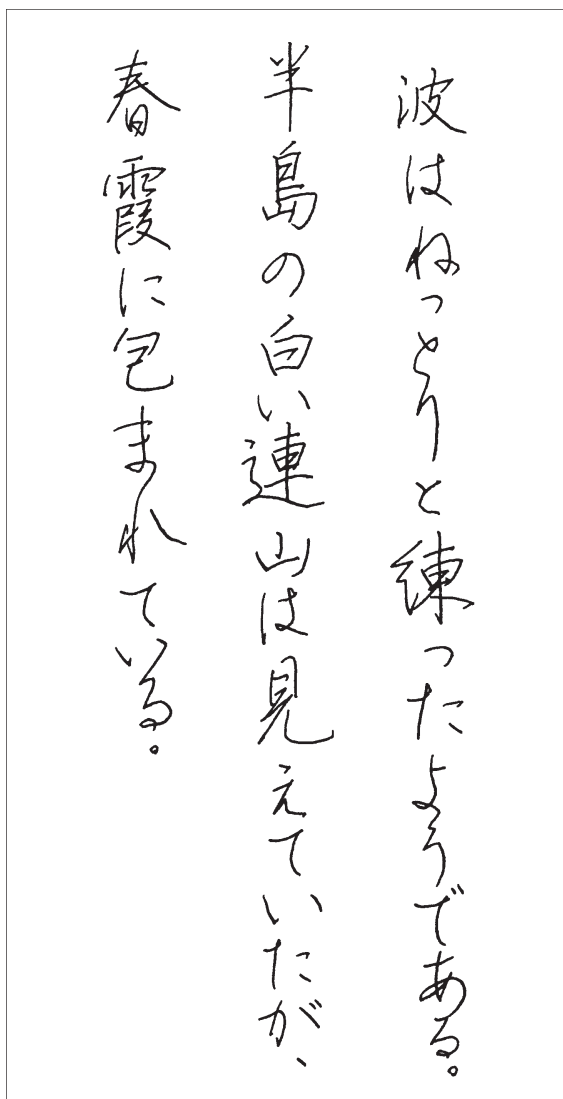 波はねっとりと練ったようである。
半島の白い連山は見えていたが、
春霞に包まれている。